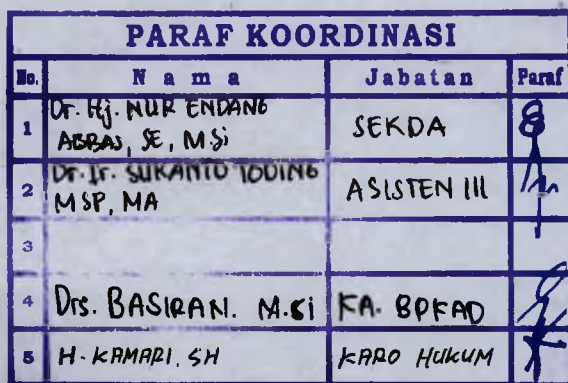 PARAF KOORDINASI
No. Nama Jabatan Paraf
1 Dr. Hj. NUR ENDANG
ABBAS, SE, MSi SEKDA
2 Dr. Ir. SUKANTO TODING
MSP, MA ASISTEN III
3
4 Drs. BASIRAN. M.Si KA. BPKAD
5 H. KAMARI, SH KARO HUKUM